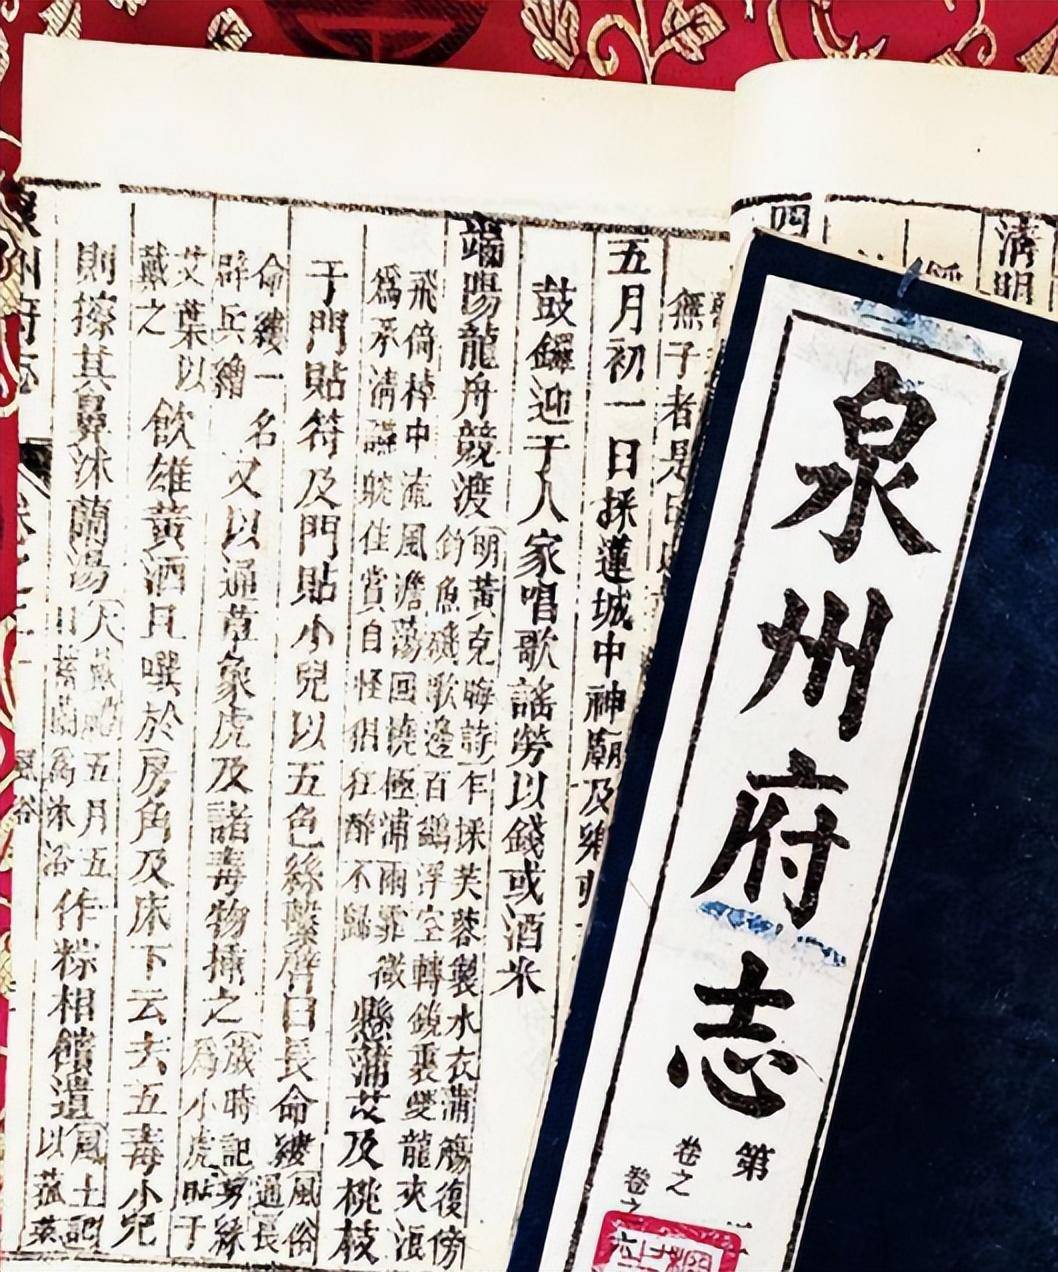 清明
四
無子者是日
五月初一日採蓮城中神廟及鄉
鼓鑼迎于人家唱歌謠勞以錢或酒米
端陽龍舟競渡
明黃克晦詩乍採芙蓉製水衣蒲觴復傍
釣魚磯歌邊百鷁浮空轉鏡裏雙龍夾浪
飛倚棹中流風澹蕩回橈極浦雨霏微
為承清讌耽佳賞自怪猖狂醉不歸
懸蒲艾及桃枝
于門貼符及門貼小兒以五色絲繫臂曰長命縷
風俗
通長
命縷一名
辟兵繒
又以通草象虎及諸毒物插之
歲時記剪綵
為小虎貼于
艾葉以
戴之
飲雄黃酒且噀於房角及床下云去五毒小兒
則擦其鼻沐蘭湯
大戴禮五月五
日蓄蘭為沐浴
作粽相饋遺
風土記
以菰葉
泉州府志
第
卷之
卷之